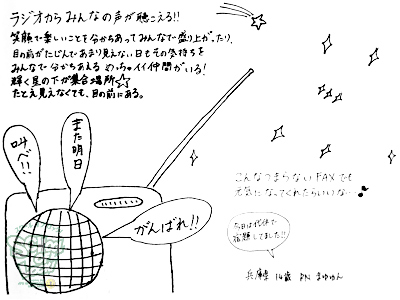 ラジオからみんなの声が聴こえる!!
笑顔で楽しいことを分かちあってみんなで盛り上がったり、
目の前がにじんであまり見えない日もその気持ちを
みんなで分かちあえる めっちゃイイ仲間がいる!
輝く星の下が集合場所☆
たとえ見えなくても、目の前にある。
叫べ!!
また明日
がんばれ!!
こんなつまらないFAXでも
元気になってくれたらいいな♪
今日は代休で
宿題してました!!
兵庫県 14歳 RN まゆゆん